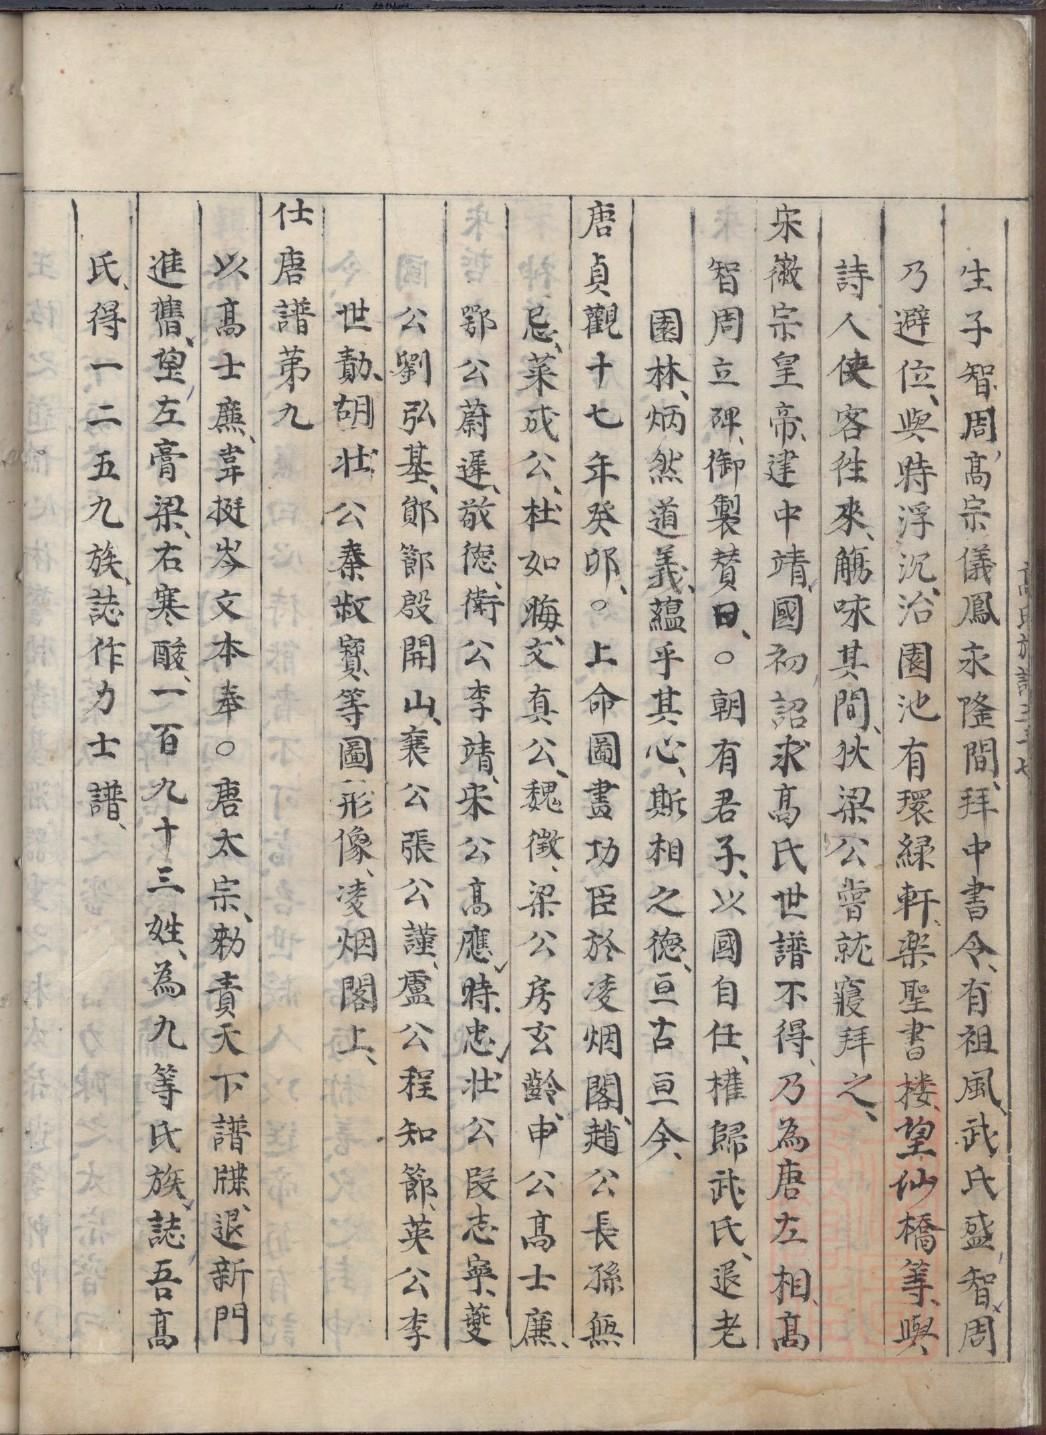 生子智周、髙宗儀鳳永隆間、拜中書令、有祖風、武氏盛、智周
乃避位、與時浮沉、治園池有環緑軒、楽聖書楼、望仙橋等、與
詩人俠客徃來、觴咏其間、狄梁公嘗就寢拜之、
宋徽宗皇帝、建中靖國初詔求髙氏世譜不得、乃為唐左相髙
智周立碑、御製賛曰、○朝有君子、以國自任、權歸武氏、退老
園林、炳然道義、蘊乎其心、斯相之德、亘古亘今、
唐貞觀十七年癸卯、○上命圖畫功臣於凌烟閣、趙公長孫無
忌、莱成公、杜如晦、文真公、魏徵、梁公房玄齡、申公髙士廉、
鄂公蔚遲、敬德、衛公李靖、宋公髙應時、忠壮公叚志寧、夔
公劉弘基、鄖節殷開山、襄公張公謹、盧公程知節、英公李
世勣、胡壮公秦叔寳等圖形像、凌烟閣上、
仕唐譜苐九
以髙士廉、韋挺岑文本奉○唐太宗、勑責天下譜牒、退新門
進舊、望左膏梁、右寒酸、一百九十三姓、為九等氏族、誌吾髙
氏、得一二五九族、誌作力士譜、